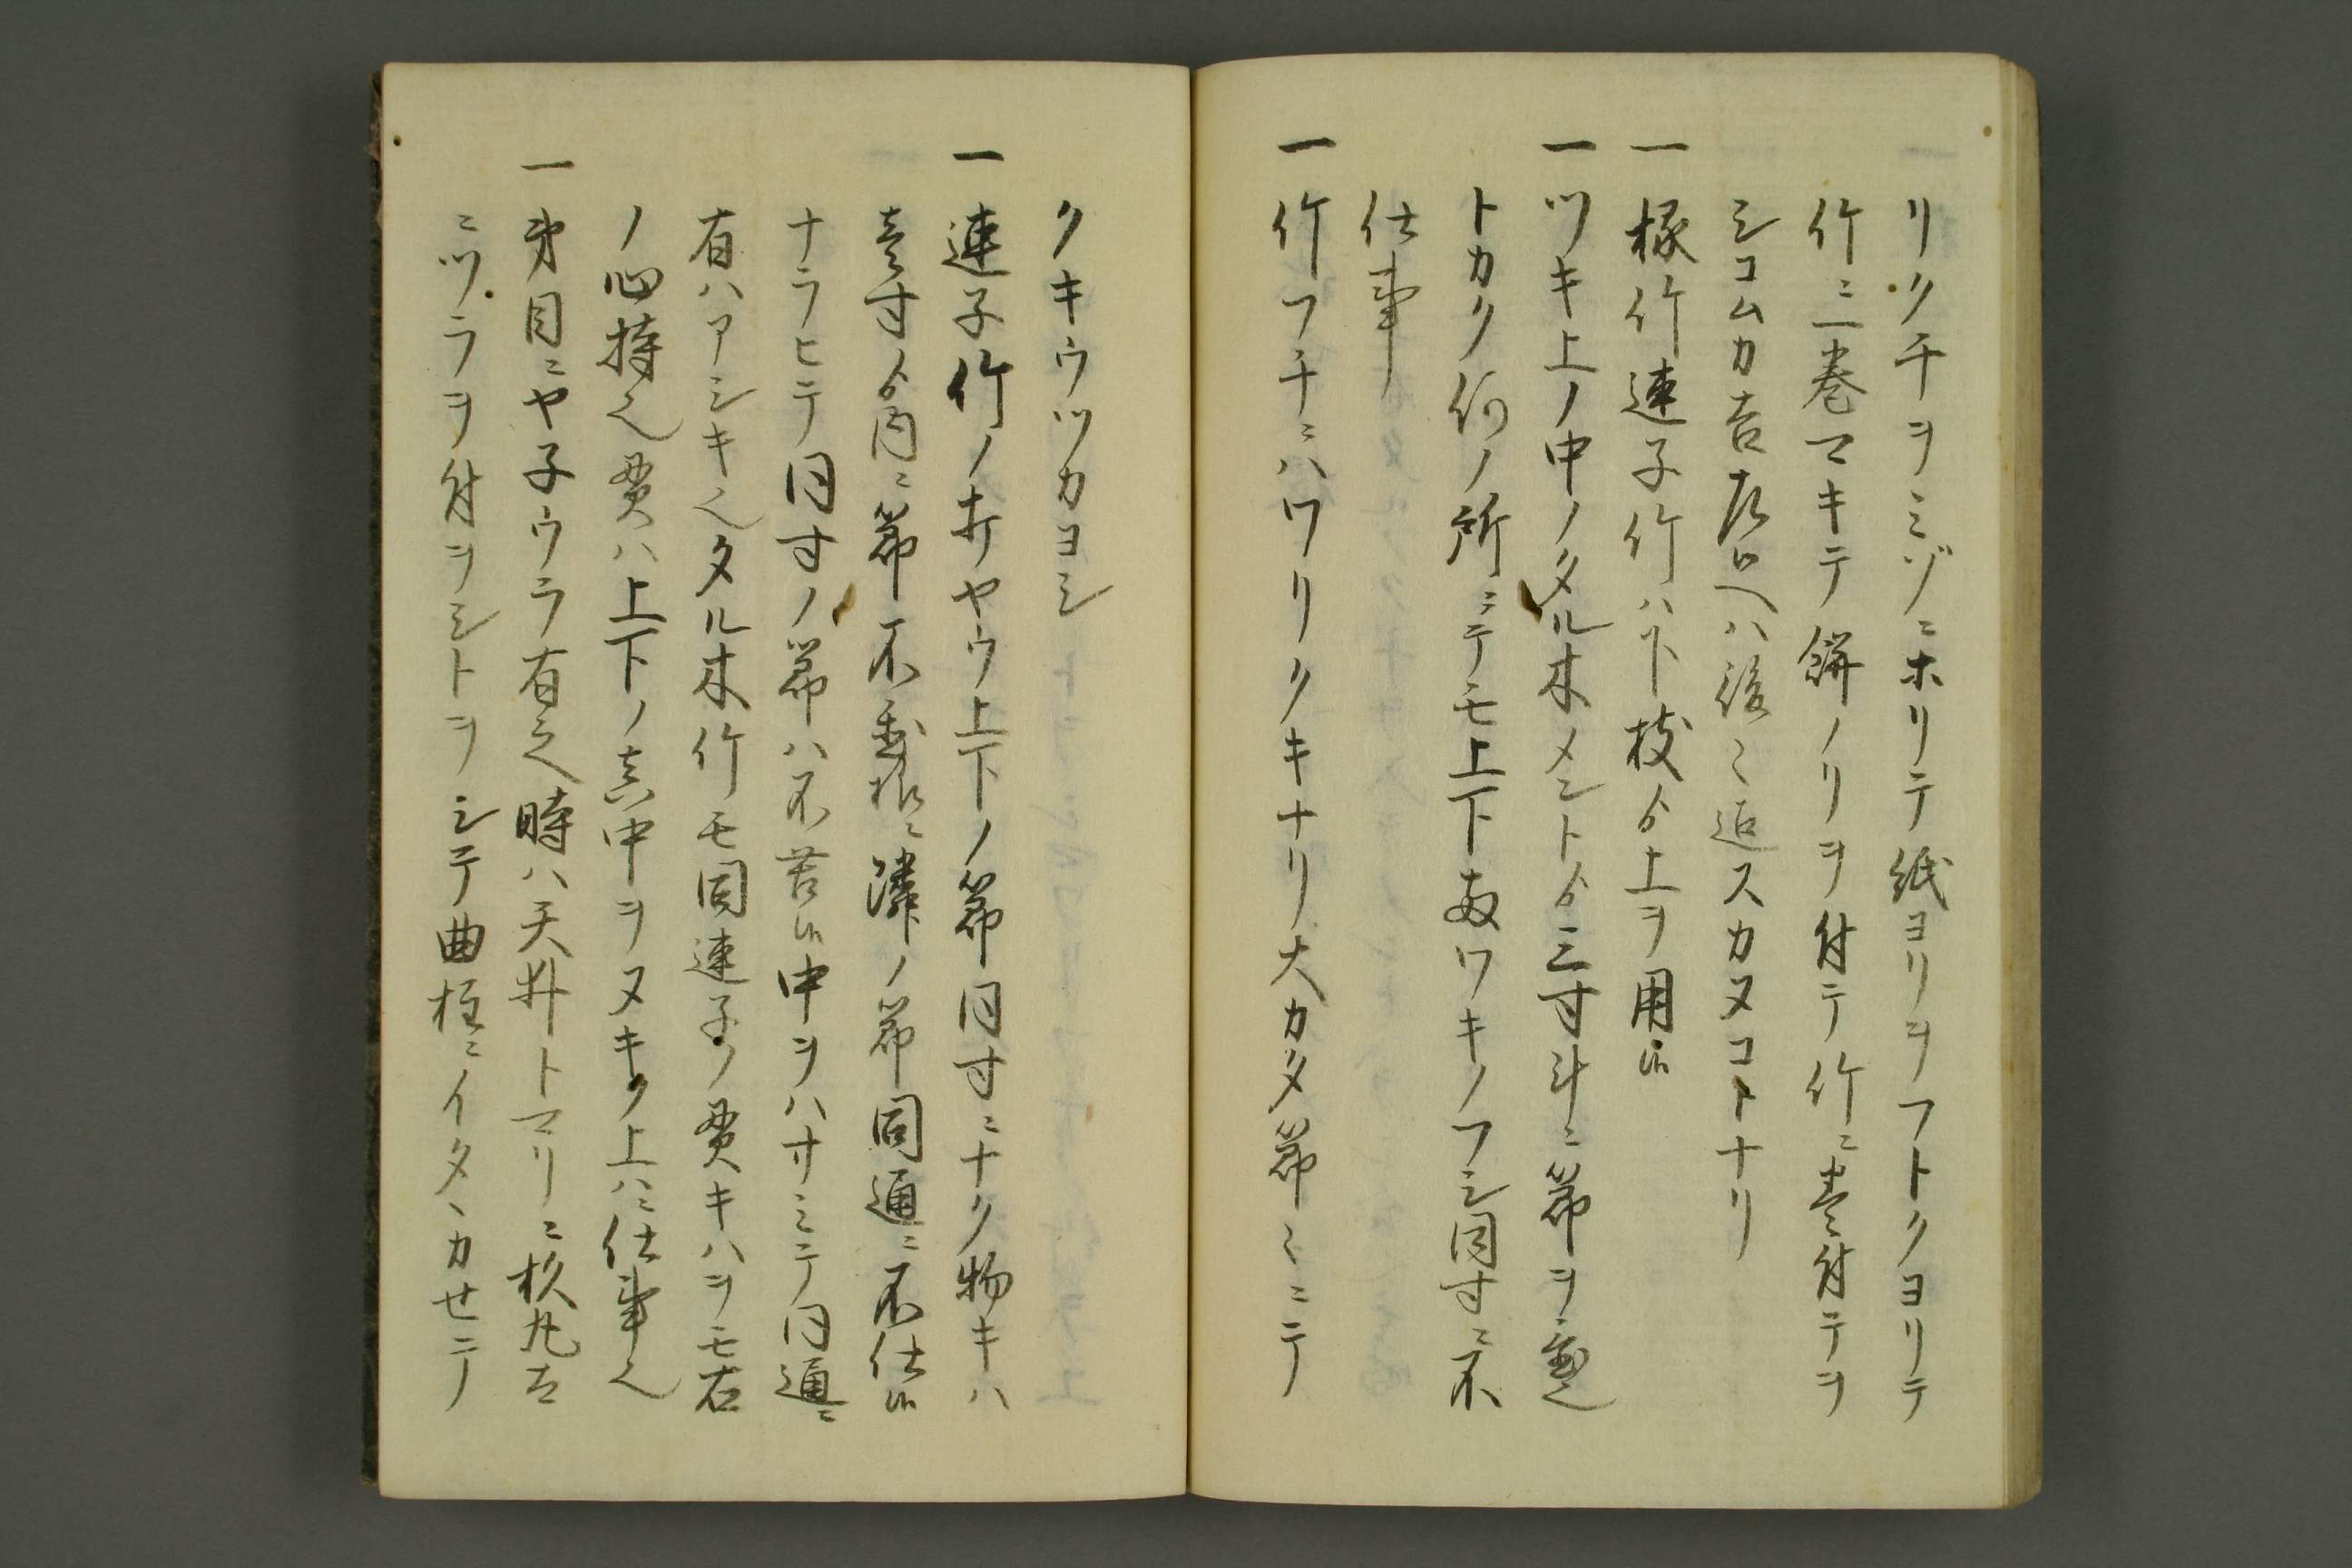 リクチヲミゾニホリテ紙ヨリヲフトクヨリテ
竹ニ二巻マキテ餅ノリヲ付テ竹ニ巻付テヲ
シコムカ吉左候ヘハ後々迄スカヌコトナリ
一 椽竹連子竹ハ下枝ゟ上ヲ用候
一 ツキ上ノ中ノタル木メシトゟ三寸斗ニ節ヲ置也
トカク何ノ所ニテモ上下両ワキノフシ同寸ニ不
仕事
一 竹フチニハワリクキナリ大カタ節ミニテ
クキウツカヨシ
一 連子竹ノ打ヤウ上下ノ節同寸ニナク物キハ
壱寸ゟ内ニ節不置様ニ隣ノ節同通ニ不仕候
ナラヒテ同寸ノ節ハ不苦候中ヲハ寸ミニテ同通ニ
有ハアシキ也タル木竹モ同連子ノ貫キハヲモ右
ノ心持也貫ハ上下ノ真中ヲヌキ上ハニ仕事也
一 目ニヤ子ウラ有之時ハ天井トマリニ杉丸太
ニツラヲ付ヲシトヲシテ曲柱ニイタヽカせテ